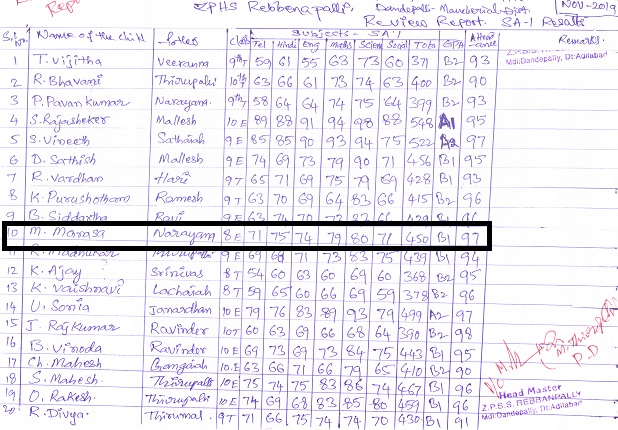 ZPHS Rebbenapally, Dandepally - Mancherial - Dist. NOV-2019
Repo
Review Report. SA-1 Results
Subjects - SA-1
S.No Name of the child Father Class Tel Hindi Eng maths Scien Social Tota GPA Atten dance Remarks.
1 T. vijitha Veeranna 9th T 59 61 55 63 73 60 371 B2 93
Z.P.S.S. REBBANPALLY
Mdl:Dandepally, Dt:Adilabad
2 R. Bhavani Thirupathi 10th T 63 66 61 73 74 63 400 B2 90
3 P. Pavan kumar Narayana. 9th T 58 64 64 74 75 64 399 B2 93
4 S. Rajasheker Mallesh 10 E 89 88 91 94 98 88 548 A1 95
5 S. Vineeth Sathaiah 9 E 85 85 90 93 94 75 522 A2 97
6 D. Sathish Mallesh 9 E 74 69 73 79 90 71 456 B1 95
7 R. Vardhan Hari 9 T 65 71 69 75 79 69 428 B1 93
8 K. Purushotham Ramesh 9 T 63 70 69 64 83 66 415 B2 96
9 B. Siddartha Ravi 9 E 63 74 70
10 M. Manasa Narayana 8 E 71 75 74 79 80 71 450 B1 97
11 R. Madhukar 9 E 69 71 73 83 75 439 B1 94
12 K. Ajay Srinivas 8 T 54 60 63 60 69 60 368 B2 95
13 K. Vaishnavi Lachaiah 8 T 59 65 60 66 69 59 378 B2 96
14 U. Sonia Janardhan 10 E 79 76 83 89 93 79 499 A2 97
15 J. Rajkumar Ravinder 10 T 60 63 69 66 68 64 390 B2 98
16 B. Vinoda Ravinder 10 E 73 69 73 84 75 443 B1 95
17 Ch. Mahesh Gangaiah 10 E 63 66 71 66 79 65 410 B2 90
18 S. Mahesh. Thirupathi 10 E 75 74 75 83 86 74 467 B1 96
19 O. Rakesh. Thirupathi 10 E 74 69 68 83 85 80 459 B1 96
20 R. Divya. Thirumal 9 T 71 66 75 74 74 70 430 B1 91
P.D
Head Master
Z.P.S.S. REBBANPALLY
Mdl:Dandepally, Dt:Adilabad